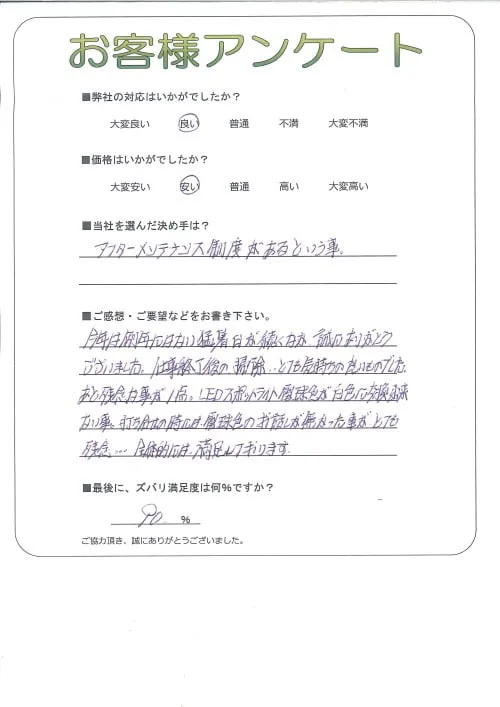 お客様アンケート
■弊社の対応はいかがでしたか？
大変良い 良い 普通 不満 大変不満
■価格はいかがでしたか？
大変安い 安い 普通 高い 大変高い
■当社を選んだ決め手は？
アフターメンテナンス制度があるという事。
■ご感想・ご要望などをお書き下さい。
今年は例年にはない猛暑日が続く中、誠にありがとう
ございました。仕事終了後の掃除‥とても気持ちの良いものでした。
あと残念な事が1点。LEDスポットライト電球色が白色に交換出来
ない事、打ち合せの時には電球色のお話しが無かった事がとても
残念…全体的には満足しております。
■最後に、ズバリ満足度は何％ですか？
90 ％
ご協力頂き、誠にありがとうございました。